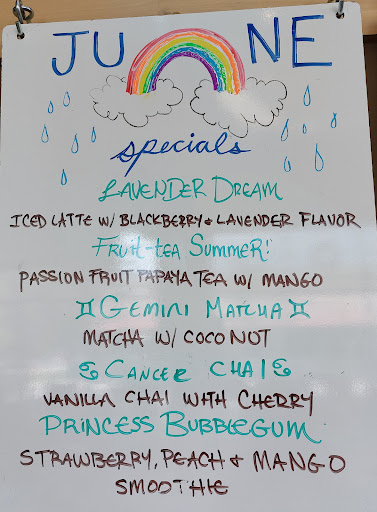 JUNE
specials
LAVENDER DREAM
ICED LATTE W/ BLACKBERRY & LAVENDER FLAVOR
FRUIT-TEA SUMMER!
PASSION FRUIT PAPAYA TEA W/ MANGO
♊ GEMINI MATCHA ♊
MATCHA W/ COCONUT
♋ CANCER CHAI ♋
VANILLA CHAI WITH CHERRY
PRINCESS BUBBLEGUM
STRAWBERRY, PEACH & MANGO
SMOOTHIE